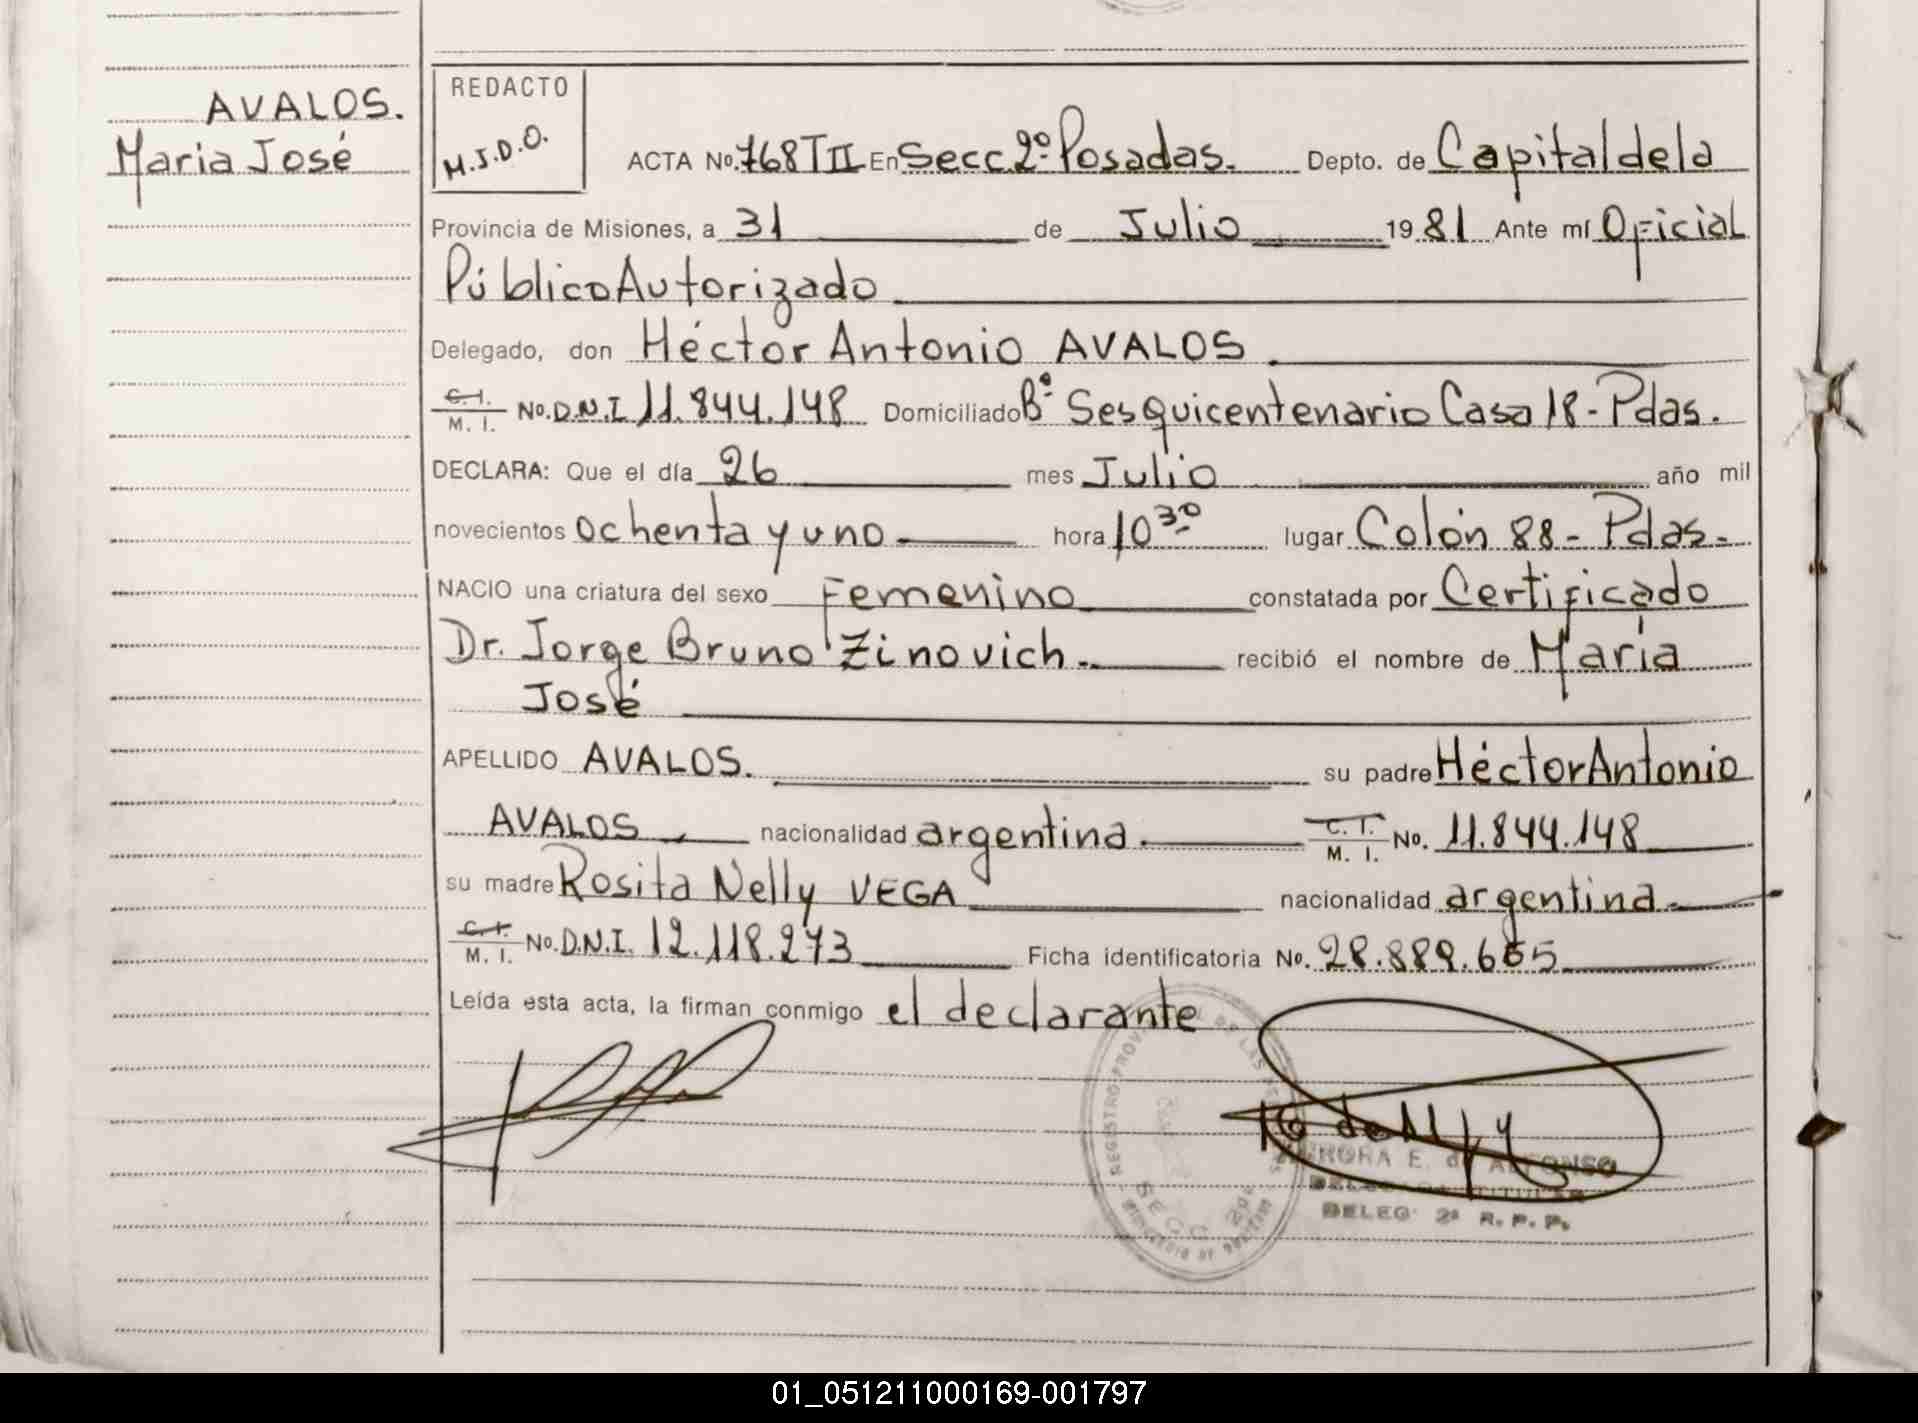 AVALOS.
Maria José
REDACTO
M.J.D.O.
ACTA No. 768 T II En Secc. 2º Posadas. Depto. de Capital de la
Provincia de Misiones, a 31 de Julio 1981 Ante mí Oficial
Público Autorizado
Delegado, don Héctor Antonio AVALOS.
C. I. M. I. No. D.N.I 11.844.148 Domiciliado Bº Sesquicentenario Casa 18 - Pdas.
DECLARA: Que el día 26 mes Julio año mil
novecientos ochenta y uno hora 10 30 lugar Colón 88 - Pdas.
NACIO una criatura del sexo Femenino constatada por Certificado
Dr. Jorge Bruno Zinovich. recibió el nombre de María
José
APELLIDO AVALOS. su padre Héctor Antonio
AVALOS, nacionalidad argentina. C. I. M. I. No. 11.844.148
su madre Rosita Nelly VEGA nacionalidad argentina.
C. I. M. I. No. D.N.I. 12.118.273 Ficha identificatoria No. 28.889.665
Leída esta acta, la firman conmigo el declarante
REGISTRO PROVINCIAL DE LAS
SECC 2da
E. de ALFONSO
DELEG. 2ª R. P. P.
01_051211000169-001797